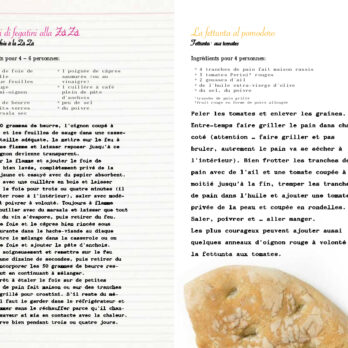 i di fegatini alla ZaZa
foie à la Za Za
ts pour 4 – 6 personnes:
de foie de
1 poignée de câpres
saumures (ou au
vinaigre)
1 cuillère à café
mi-oignon
plein de pâte
d'anchois
de beurre
peu de sel
its verres
du poivre
rsala sec
0 grammes de beurre, l'oignon coupé à
et les feuilles de sauge dans une casse-
taille adéquate. Le mettre sur le feu à
use flamme et laisser reposer jusqu'à ce
gnon devienne transparent.
r la flamme et ajouter le foie de
bien lavés, complètement privé de la
jaune et essuyé avec du papier absorbant.
avec une cuillère en bois et laisser
le foie pour trois ou quatre minutes (il
ter rose à l'intérieur), saler avec modé-
t poivrer à volonté. Toujours à flamme
outiller avec du marsala et laisser que tout
du vin s'évapore, puis retirer du feu.
e foie et les câpres bien rincés sous
urante dans le hache-viande au disque
ttre le mélange dans la casserole ou on
e foie et ajouter la pâte d'anchois.
soigneusement et remettre sur le feu
une dizaine de secondes, puis retirer du
ncorporer les 50 grammes de beurre res-
ut en continuant à mélanger.
rêt à étaler le foie sur de petites
de pain fait maison ou sur des tranches
grillé pour crostini. S'il reste du mé-
il faut le garder dans le réfrigérateur et
saveur et mis en contacte avec la chaleur.
rve bien pendant trois ou quatre jours.
La fettunta al pomodoro
Fettunta aux tomates
Ingrédients pour 4 personnes:
4 tranches de pain fait maison rassis
3 tomates Perini* rouges
2 gousses d'ail
de l'huile extra-vierge d'olive
du sel, du poivre
*tranche de pain grillé
*fruit rouge en forme de poire allongée
Peler les tomates et enlever les graines.
Entre-temps faire griller le pain dans chaque
coté (attention … faire griller et pas
bruler, autrement le pain va se sécher à
l'intérieur). Bien frotter les tranches de
pain avec de l'ail et une tomate coupée à
moitié jusqu'à la fin, tremper les tranches
de pain dans l'huile et ajouter une tomate
privée de la peau et coupée en rondelles.
Saler, poivrer et … aller manger.
Les plus courageux peuvent ajouter aussi
quelques anneaux d'oignon rouge à volonté
la fettunta aux tomates.